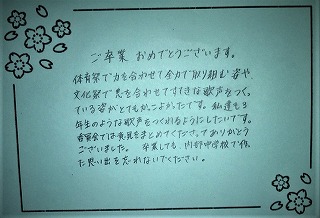 ご卒業 おめでとうございます。
体育祭で力を合わせて全力で取り組む姿や、
文化祭で息を合わせてすてきな歌声をつくっ
ている姿がとてもかっこよかったです。私達も3
年生のような歌声をつくれるようにしたいです。
委員会では意見をまとめてくださってありがとう
ございました。 卒業しても、内部中学校で作っ
た思い出を忘れないでください。